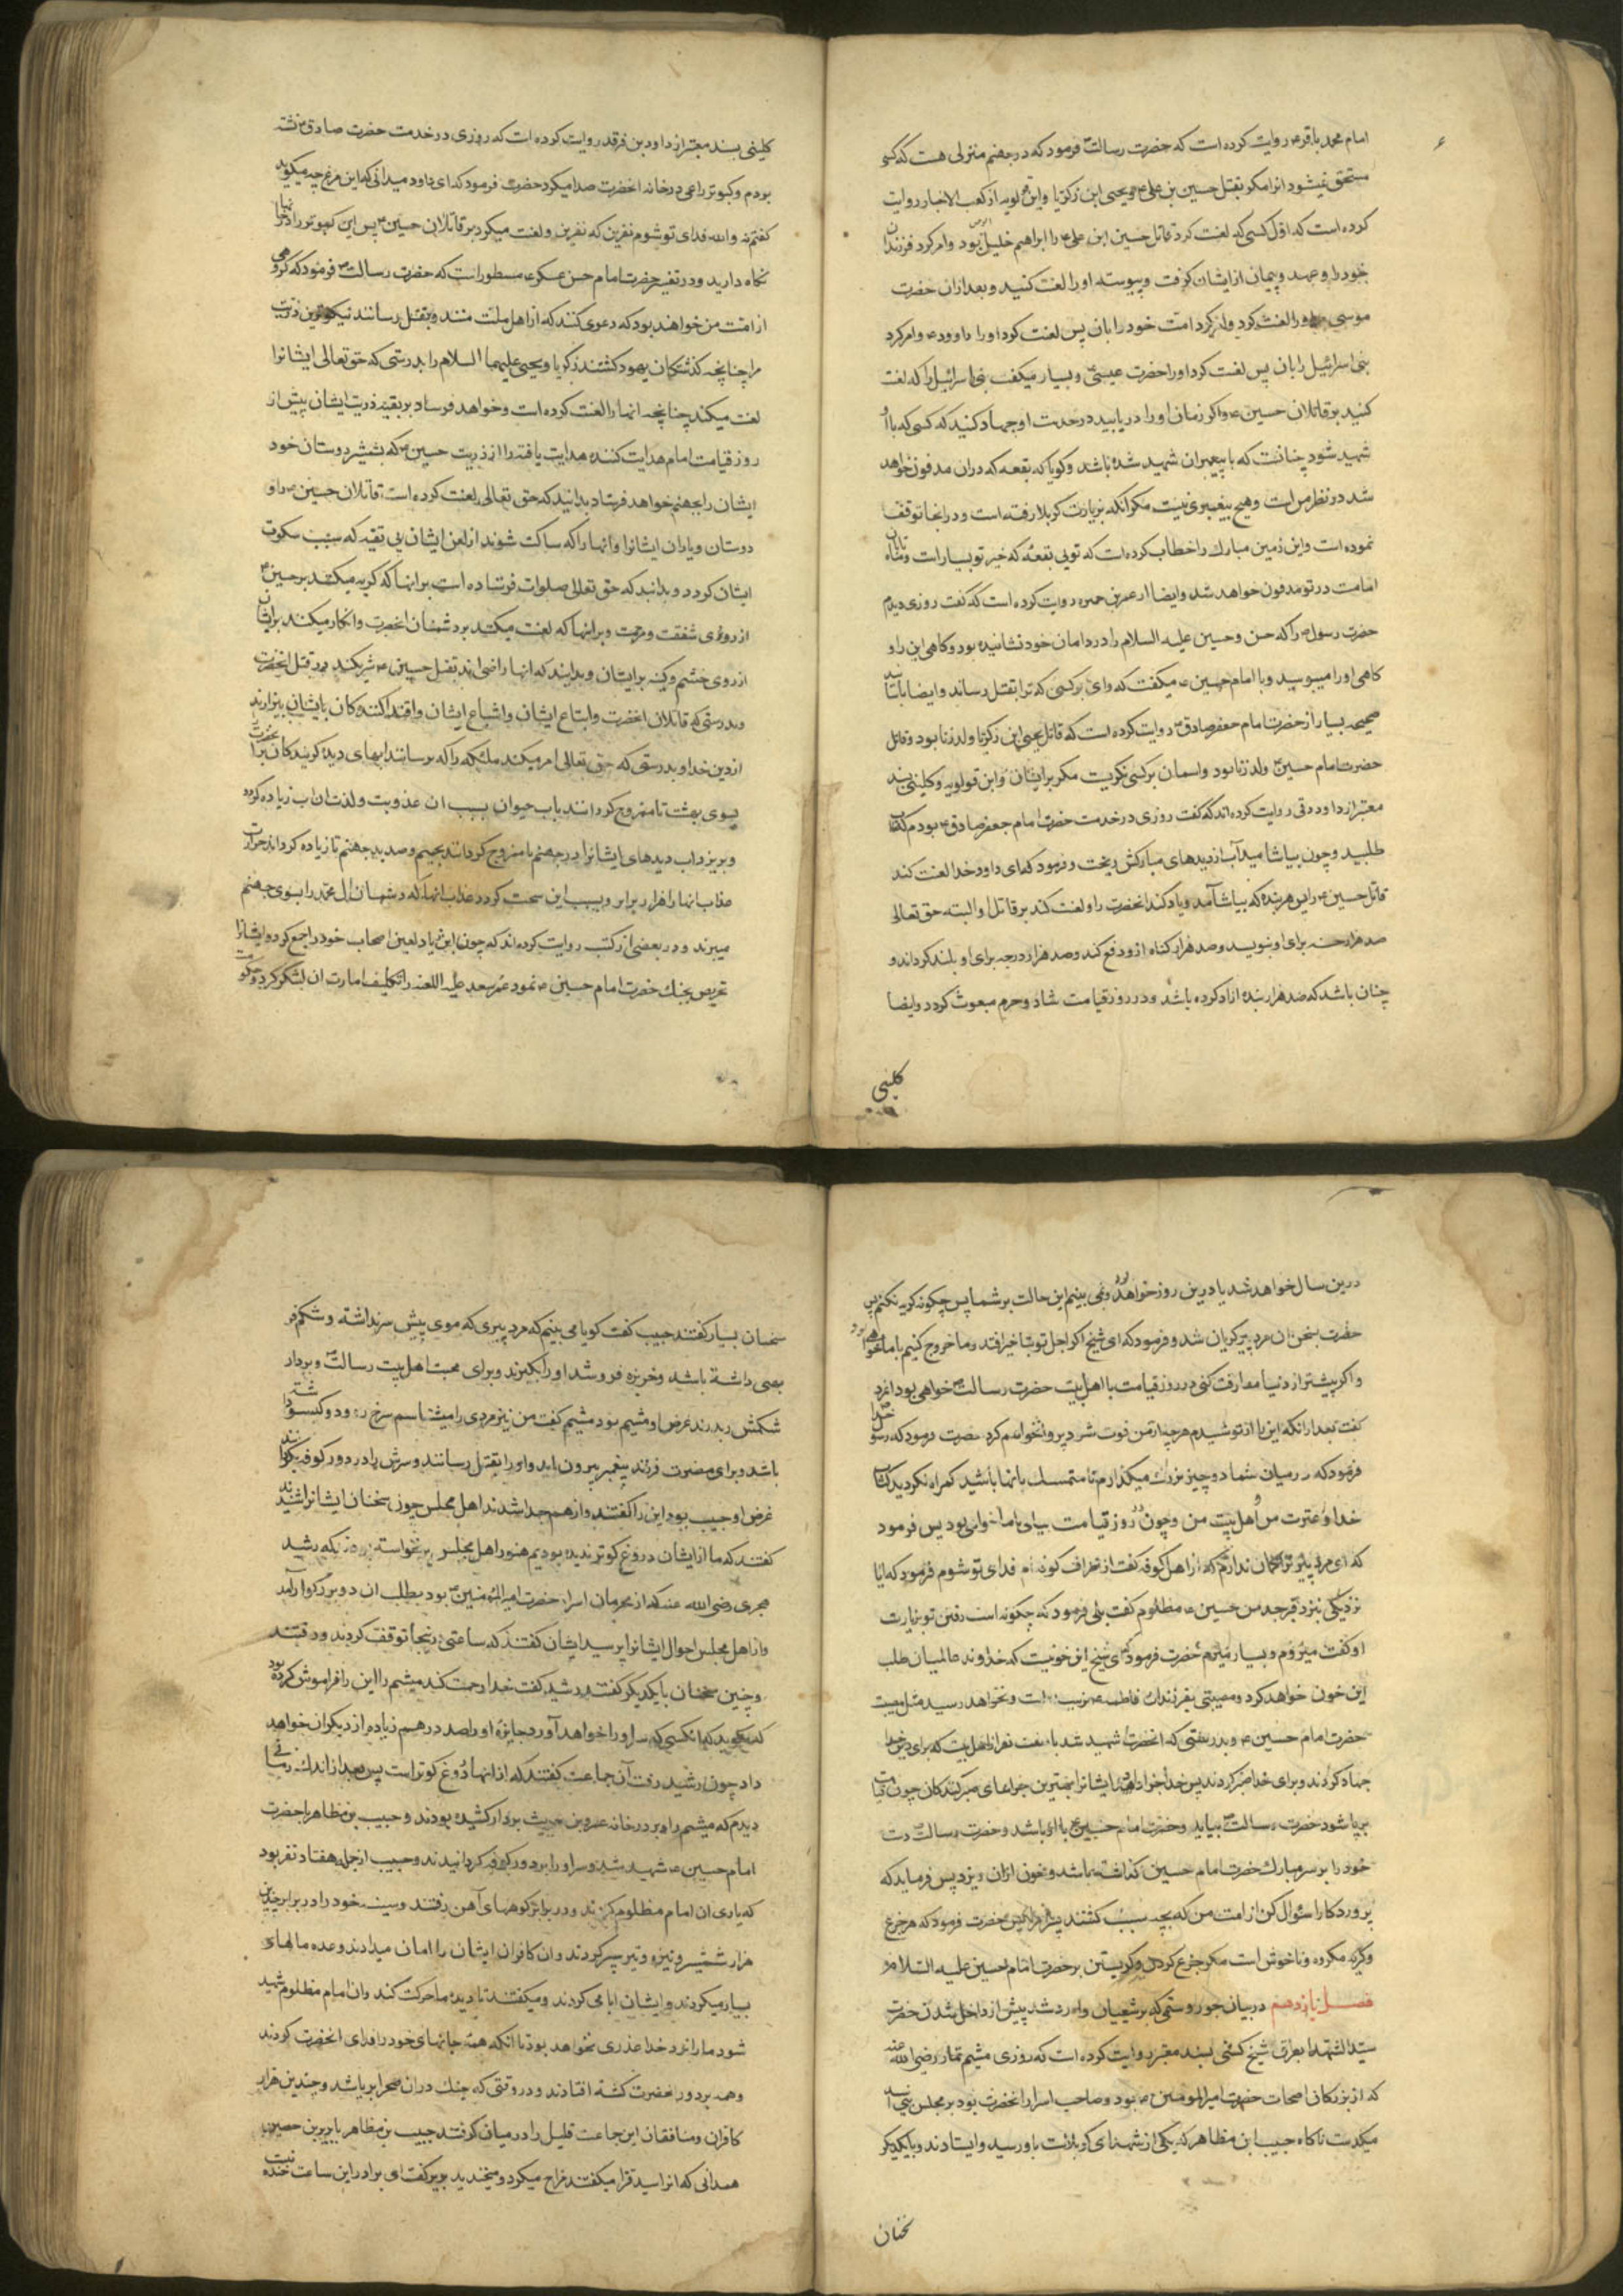 امام محمد باقر ع روایت کرده است که حضرت رسالت فرمود که در جهنم منزلی هست که کسی
مستحق نمیشود انرا مکر بقتل حسین بن علی و یحیی ابن زکریا و ابن قولویه از کعب الاخبار روایت
کرده است که اول کسی که لعنت کرد قاتل حسین ابن علی را ابراهیم خلیل بود و امر کرد فرزندان
خود را و عهد و پیمان از ایشان کرفت و پیوسته او را لعنت کنید و بعد ازان حضرت
موسی او را لعنت کرد و امر کرد امت خود را بان پس لعنت کرد او را داوود و امر کرد
بنی اسرائیل را بان پس لعنت کرد او را حضرت عیسی و بسیار میکفت بنی اسرائیل را که لعنت
کنید بر قاتلان حسین ع و اکر زمان او را دریابید در خدمت او جهاد کنید که کسی که با او
شهید شود چنانست که با پیغمبران شهید شده باشد و کویا که بقعه که دران مدفون خواهد
شد در نظر من است و هیچ پیغمبری نیست مکر انکه بزیارت کربلا رفته است و در انجا توقف
نموده است و این زمین مبارک را خطاب کرده است که توئی بقعهٔ که خیر تو بسیار است و ماه تابان
امامت در تو مدفون خواهد شد و ایضا از عمر بن روایت کرده است که کفت روزی دیدم
حضرت رسول را که حسن و حسین علیه السلام را در دامان خود نشانیده بود و کاهی این را و
کاهی او را میبوسید و با امام حسین ع میکفت که وای بر کسی که ترا بقتل رساند و ایضا باسانید
صحیحه بسیار از حضرت امام جعفر صادق روایت کرده است که قاتل یحیی ابن زکریا ولد زنا بود و قاتل
حضرت امام حسین ولد زنا بود و اسمان بر کسی نکریست مکر بر ایشان و ابن قولویه و کلینی بسند
معتبر از داود رقی روایت کرده اند که کفت روزی در خدمت حضرت امام جعفر صادق ع بودم که اب
طلبید و چون بیاشامید آب از دیدهای مبارکش ریخت و فرمود که ای داود خدا لعنت کند
قاتل حسین ع را پس هر بنده که بیاشامد و یاد کند انحضرت را و لعنت کند بر قاتل او البته حق تعالی
صد هزار حسنه برای او بنویسد و صد هزار کناه ازو دفع کند و صد هزار درجه برای او بلند کرداند و
چنان باشد که صد هزار بنده ازاد کرده باشد و در روز قیامت شاد و خرم مبعوث کردد و ایضا
کلینی
کلینی بسند معتبر از داود بن فرقد روایت کرده است که روزی در خدمت حضرت صادق ع نشته
بودم و کبوتر راعی در خانه انحضرت صدا میکرد حضرت فرمود که ای داود میدانی که این مرغ چه میکوید
کفتم نه والله فدای تو شوم نفرین که نفرین و لعنت میکرد بر قاتلان حسین ع پس این کبوتر را در خانها
نکاه دارید و در تفسیر حضرت امام حسن عسکری مسطور است که حضرت رسالت فرمود که کروهی
از امت من خواهند بود که دعوی کنند که از اهل ملت منند و بقتل رسانند نیکوترین ذریت
مرا چنانچه کذشتکان یهود کشتند زکریا و یحیی علیهما السلام را بدرستی که حق تعالی ایشانرا
لعنت میکند چنانچه انها را لعنت کرده است و خواهد فرستاد بر بقیه ذریت ایشان پیش از
روز قیامت امام هدایت کننده هدایت یافته را از ذریت حسین ع که بشمشیر دوستان خود
ایشان را بجهنم خواهد فرستاد بدانید که حق تعالی لعنت کرده است قاتلان حسین ع را و
دوستان و یاران ایشانرا و انها را که ساکت شوند از لعن ایشان بی تقیه که سبب سکوت
ایشان کردد و بدانید که حق تعالی صلوات فرستاده است بر انها که کریه میکنند بر حسین
از روی شفقت و رحمت و بر انها که لعنت میکنند بر دشمنان انحضرت و انکار میکنند بر ایشان
از روی خشم و کینه بر ایشان و بدانید که انها راضی اند بقتل حسین ع شریکند در قتل انحضرت
و بدرستی که قاتلان انحضرت و اتباع ایشان و اشیاع ایشان و اقتدا کنندکان بایشان بیزارند
از دین خدا و بدرستی که حق تعالی امر میکند ملئکه را که برسانند ابهای دیده کریه کنندکان بر انحضرت
بسوی بهشت تا ممزوج کردانند باب حیوان بسبب ان عذوبت و لذت ان اب زیاده کردد
و بریزد اب دیدهای ایشانرا در جهنم تا ممزوج کردانند بحمیم و صدید جهنم تا زیاده کرداند حرارت
عذاب انها را هزار برابر و بسبب این سخت کردد عذاب انها که دشمنان ال محمد را بسوی جهنم
میبرند و در بعضی از کتب روایت کرده اند که چون ابن زیاد لعین اصحاب خود را جمع کرد و ایشانرا
تحریص بجنک حضرت امام حسین ع نمود عمر سعد علیه اللعنه را تکلیف امارت ان لشکر کرد و
درین سال خواهد شد یا درین روز خواهد بود و نمی بینم این حالت بر شما پس چکونه کریه نکنم پس
حضرت بسخن ان مرد پیر کریان شد و فرمود که ای شیخ اکر اجل تو بتاخیر افتد و ما خروج کنیم با ما خواهی بود
و اکر پیشتر از دنیا مفارقت کنی در روز قیامت با اهل بیت حضرت رسالت خواهی بود انمرد
کفت بعد از انکه این را از تو شنیدم هر چه از من فوت شود پروا نخواهم کرد حضرت فرمود که رسول خدا
فرمود که در میان شما دو چیز بزرک میکذارم تا متمسک بانها باشید کمراه نکردید کتاب
خدا و عترت من و اهل بیت من و چون در روز قیامت بیائی با ما خواهی بود پس فرمود
که ای مرد پیر ترا کمان ندارم که از اهل کوفه کفت از اطراف کوفه ام فدای تو شوم فرمود که ایا
نزدیکی بنزد قبر جد من حسین ع مظلوم کفت بلی فرمود که چکونه است رفتن تو بزیارت
او کفت میروم و بسیار میروم حضرت فرمود که ای شیخ این خونیست که خداوند عالمیان طلب
این خون خواهد کرد و مصیبتی بفرزندان فاطمه ع نرسیده است و نخواهد رسید مثل مصیبت
حضرت امام حسین ع و بدرستی که انحضرت شهید شد با نفر از اهل بیت که برای دین خدا
جهاد کردند و برای خدا صبر کردند پس خدا جزا داد ایشانرا بهترین جزاهای صبر کنندکان چون قیامت
برپا شود حضرت رسالت بیاید و حضرت امام حسین ع با او باشد و حضرت رسالت دست
خود را بر سر مبارک حضرت امام حسین کذاشته باشد و خون ازان ریزد پس فرماید که
پروردکارا سئوال کن از امت من که بچه سبب کشتند پسر مرا پس حضرت فرمود که هر جزع
و کریه مکروه و ناخوش است مکر جزع کردن و کریستن بر حضرت امام حسین علیه السلام
فصل یازدهم در بیان جور و ستمی که بر شیعیان وارد شد پیش از داخل شدن حضرت
سید الشهدا بعراق شیخ کشی بسند معتبر روایت کرده است که روزی میثم تمار رضی الله عنه
که از بزرکان اصحاب حضرت امیر المومنین ع بود و صاحب اسرار انحضرت بود بر مجلس بنی اسد
میکذشت ناکاه حبیب ابن مظاهر که یکی از شهدای کربلاست باو رسید و ایستادند و با یکدیکر
سخنان
سخنان بسیار کفتند حبیب کفت کویا می بینم که مرد پیری که موی پیش سر نداشته و شکم فر
بهی داشته باشد و خربزه فروشد او را بکیرند و برای محبت اهل بیت رسالت و بر دار
شکمش بدرند غرض او میثم بود میثم کفت من نیز مردی را میشناسم سرخ رو و دو کیسو داشته
باشد و برای نصرت فرزند پیغمبر بیرون اید و او را بقتل رسانند و سرش را در دور کوفه بکردانند
غرض او حبیب بود این را کفتند و از هم جدا شدند اهل مجلس چون سخنان ایشانرا شنیدند
کفتند که ما از ایشان دروغ کوتر ندیده بودیم هنوز اهل مجلس بر نخواسته بودند که رشید
هجری رضی الله عنه که از محرمان اسرار حضرت امیر المومنین ع بود بطلب ان دو بزرکوار آمد
و از اهل مجلس احوال ایشانرا پرسید ایشان کفتند که ساعتی در اینجا توقف کردند و رفتند
و چنین سخنان با یکدیکر کفتند رشید کفت خدا رحمت کند میثم را این را فراموش کرده بود
که بکوید که انکسی که سر او را خواهد آورد جایزهٔ او را صد درهم زیاده از دیکران خواهند
داد چون رشید رفت آن جماعت کفتند که از انها دروغ کوتر است پس بعد از اندک زمانی
دیدم که میثم را بر در خانه عمرو بن حریث بر دار کشیده بودند و حبیب بن مظاهر با حضرت
امام حسین ع شهید شد و سر او را بر دور کوفه کردانیدند و حبیب از جمله هفتاد نفر بود
که یاری ان امام مظلوم کردند و در برابر کوههای آهن رفتند و سینه خود را در برابر چندین
هزار شمشیر و نیزه و تیر سپر کردند و ان کافران ایشان را امان میدادند و وعده مالهای
بسیار میکردند و ایشان ابا می کردند و میکفتند تا دیده ما حرکت کند و ان امام مظلوم شهید
شود ما را نزد خدا عذری نخواهد بود تا انکه همه جانهای خود را فدای انحضرت کردند
و همه بر دور انحضرت کشته افتادند و در وقتی که جنک دران صحرا برپا شد و چندین هزار
کافران و منافقان این جماعت قلیل را در میان کرفتند حبیب بن مظاهر با بریر بن حصین
همدانی که او را سید قرا میکفتند مزاح میکرد و میخندید بریر کفت ای برادر این ساعت خنده نیست